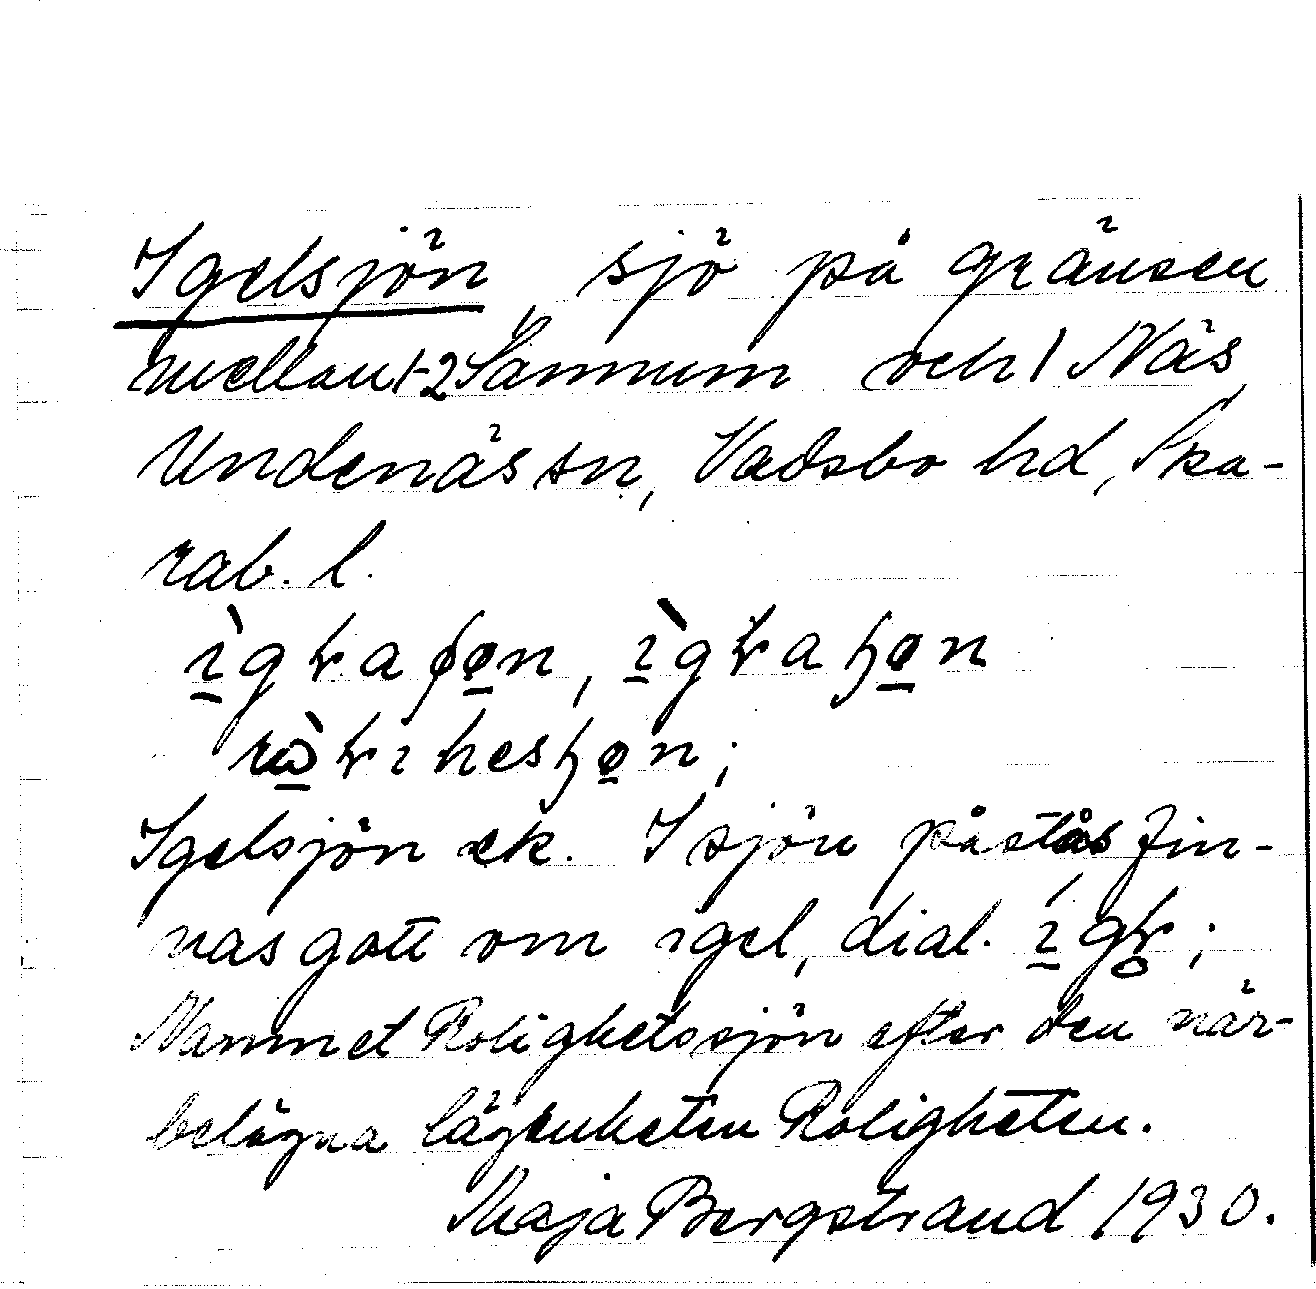 Igelsjön, sjö på gränsen
mellan 1-2 Sannum och 1 Näs,
Undenäs sn, Vadsbo hd, Ska-
rab. l.
Igelsjön ek. I sjön påstås fin-
nas gott om igel, dial.
Namnet Rolighetssjön efter den när-
belägna lägenheten Roligheten.
Maja Bergstrand 1930.